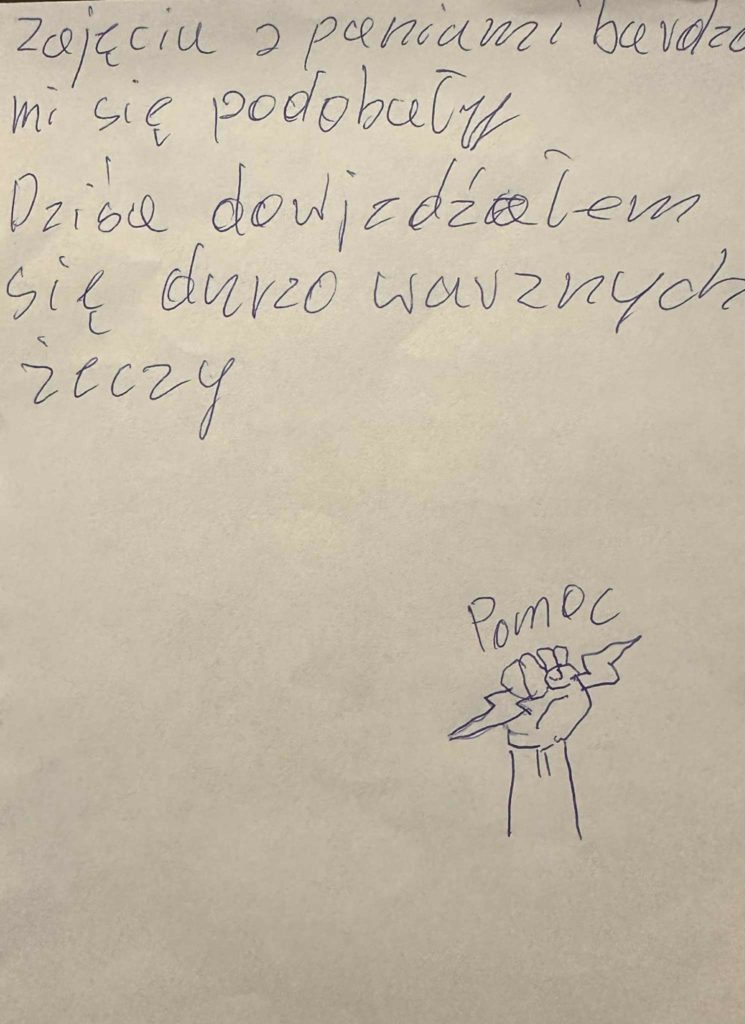 Zajęcia z paniami bardzo
mi się podobały
Dziśa dowjedźałem
się durzo warznych
żeczy
Pomoc